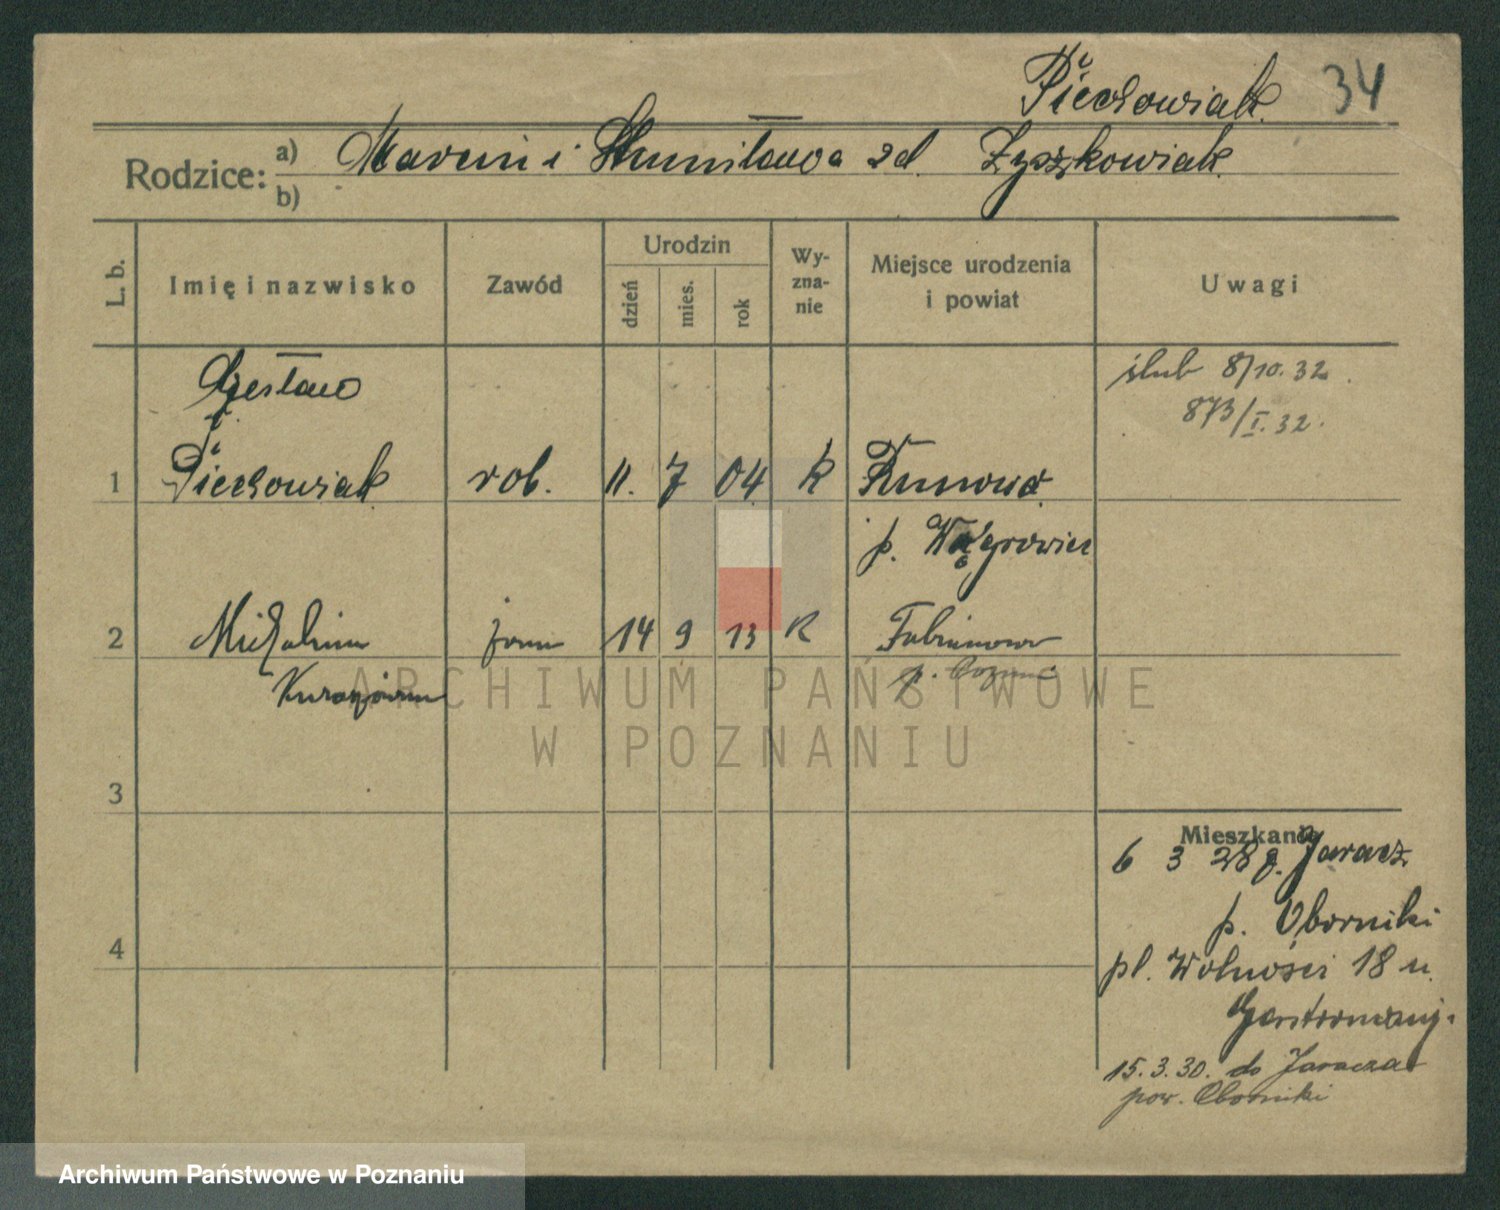 Piechowiak 34
Rodzice: a) Marcin i Stanisława zd. Zyszkowiak
b)
L. b. Imię i nazwisko Zawód Urodzin dzień mies. rok Wyznanie Miejsce urodzenia i powiat Uwagi
Czesław ślub 8/10.32
873/I.32.
1 Piechowiak rob. 11. 7 04 k
p. Wągrowiec
2 Michalina żona 14 9 13 k Fabianowo
p. Poznań
ARCHIWUM PAŃSTWOWE
W POZNANIU
3
Mieszkanie
6 3 28 z Jaracz
p. Oborniki
4
pl. Wolności 18 u
15.3.30. do Jaracza
pow. Oborniki
Archiwum Państwowe w Poznaniu